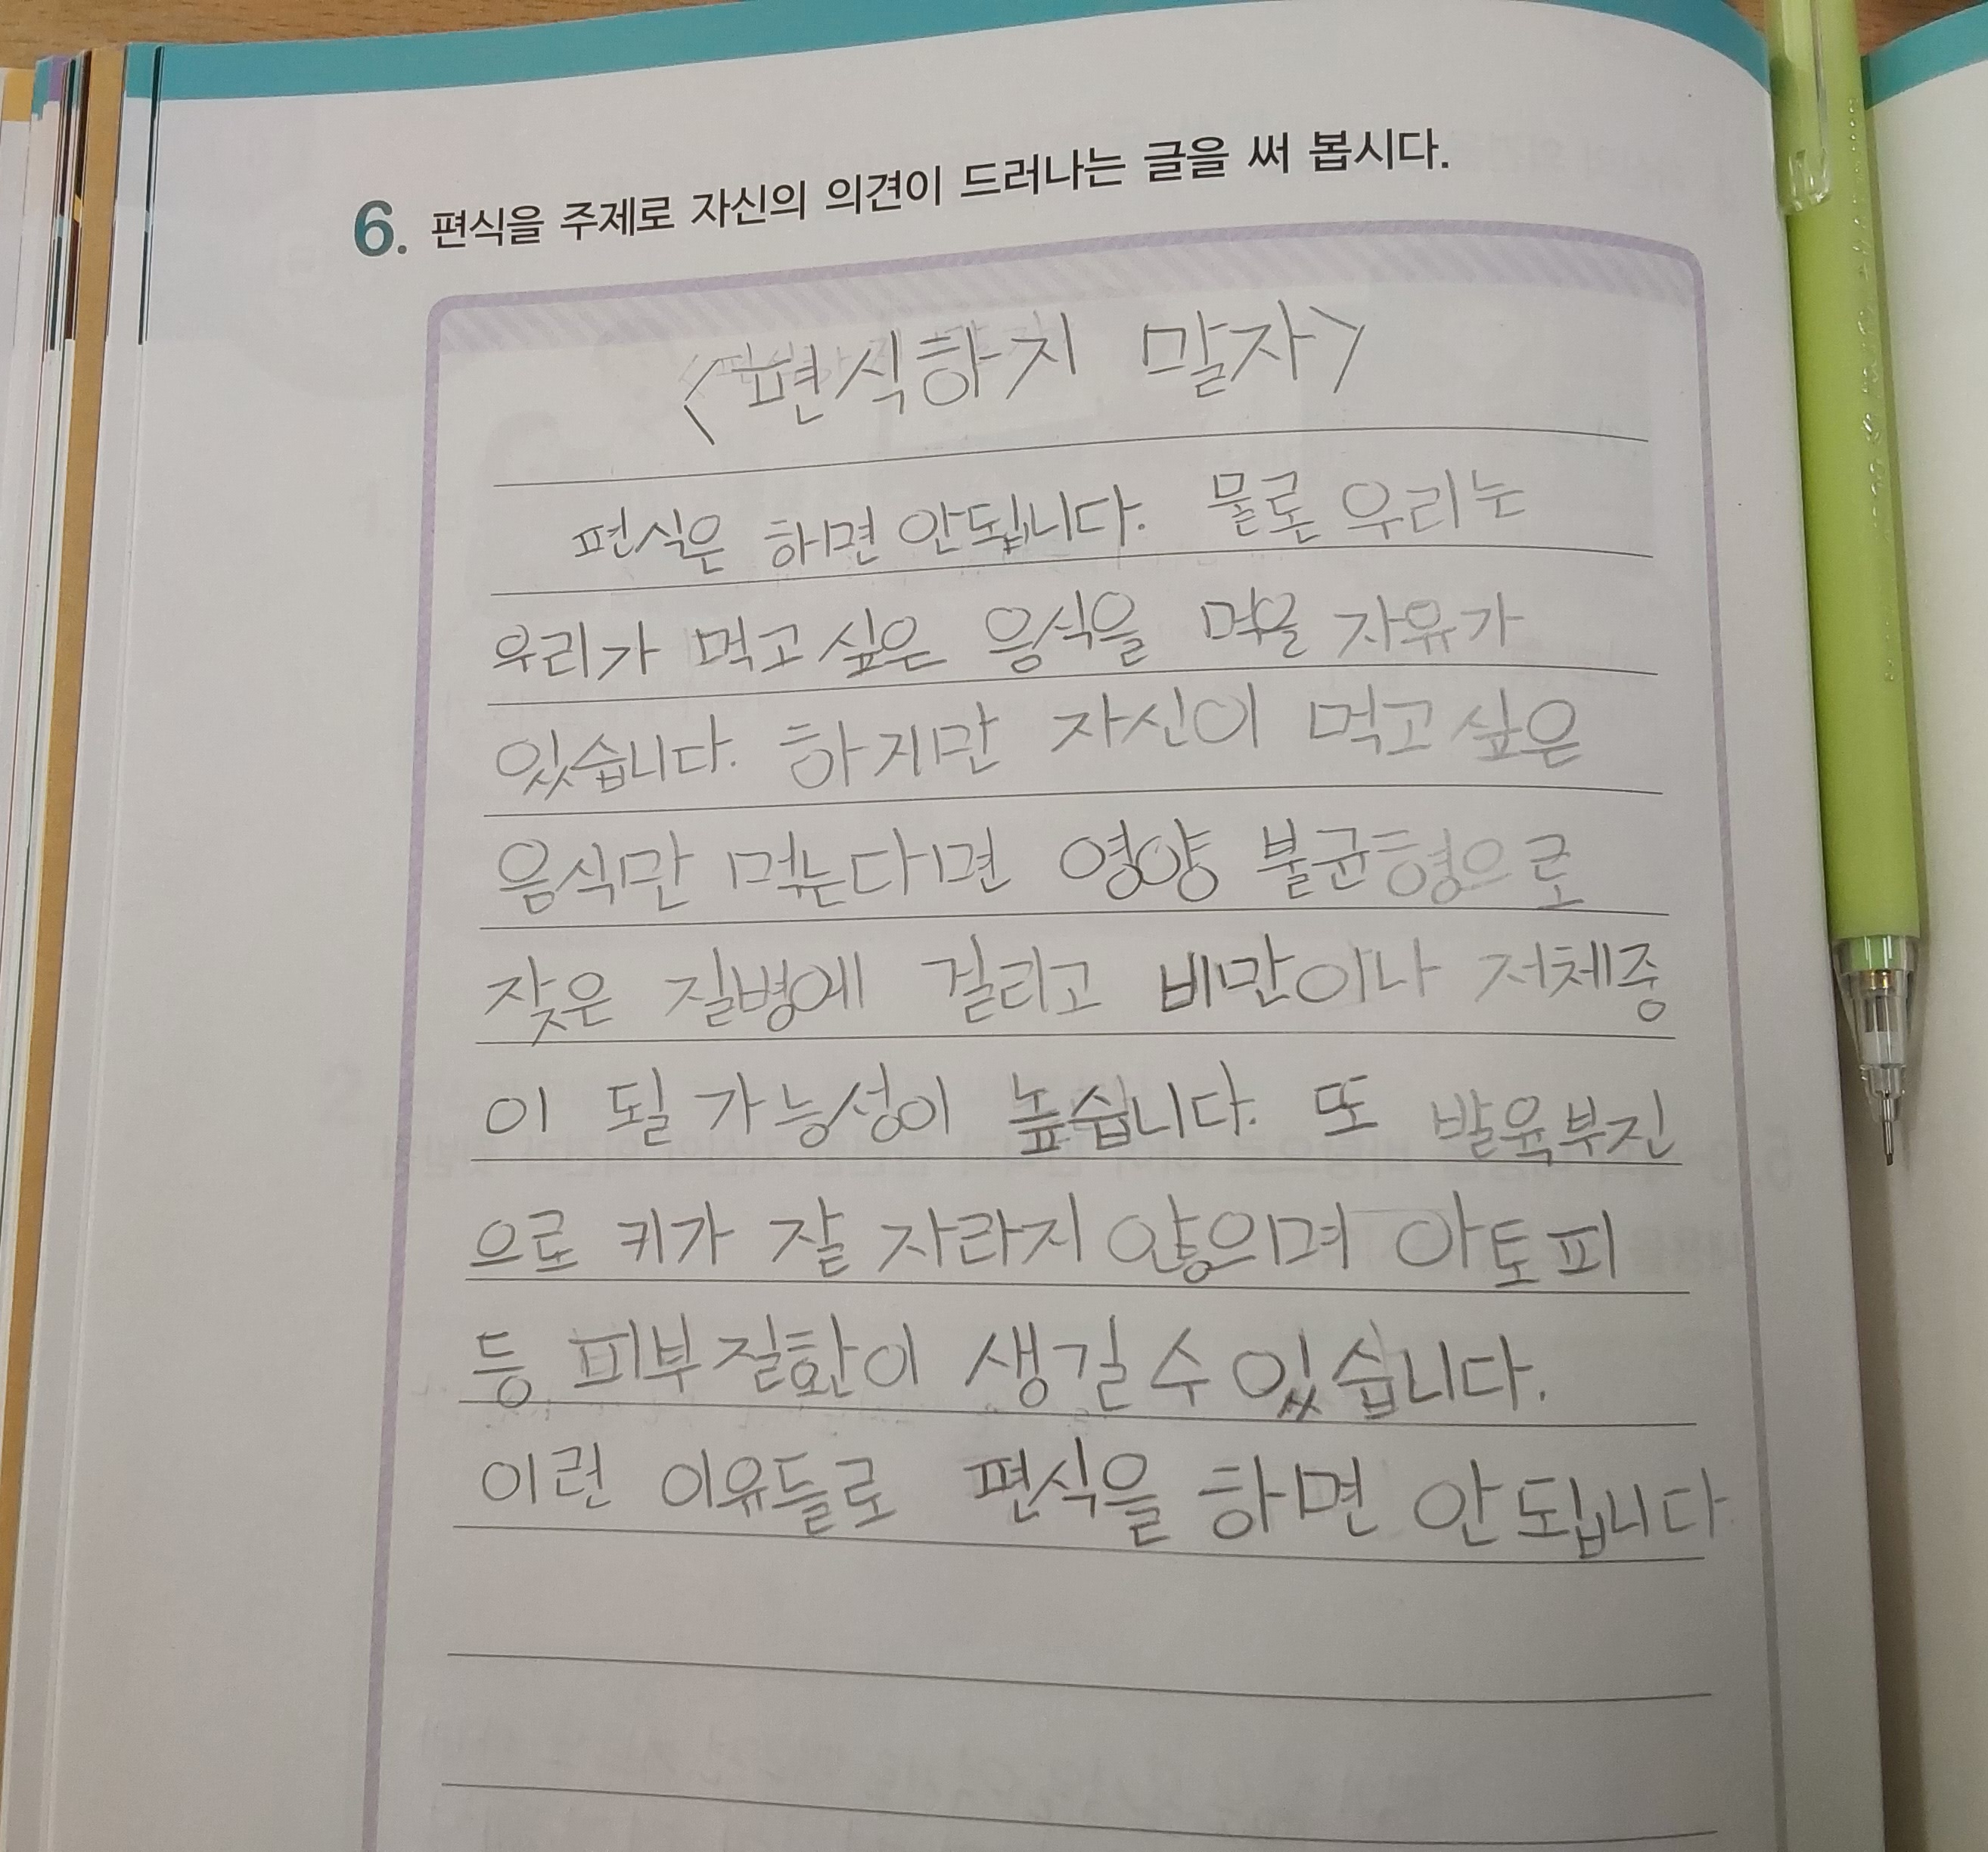 6. 편식을 주제로 자신의 의견이 드러나는 글을 써 봅시다.
<편식하지 말자>
편식은 하면 안됩니다. 물론 우리는
우리가 먹고싶은 음식을 먹을 자유가
있습니다. 하지만 자신이 먹고싶은
음식만 먹는다면 영양 불균형으로
잦은 질병에 걸리고 비만이나 저체중
이 될 가능성이 높습니다. 또 발육부진
으로 키가 잘 자라지 않으며 아토피
등 피부질환이 생길 수 있습니다.
이런 이유들로 편식을 하면 안됩니다